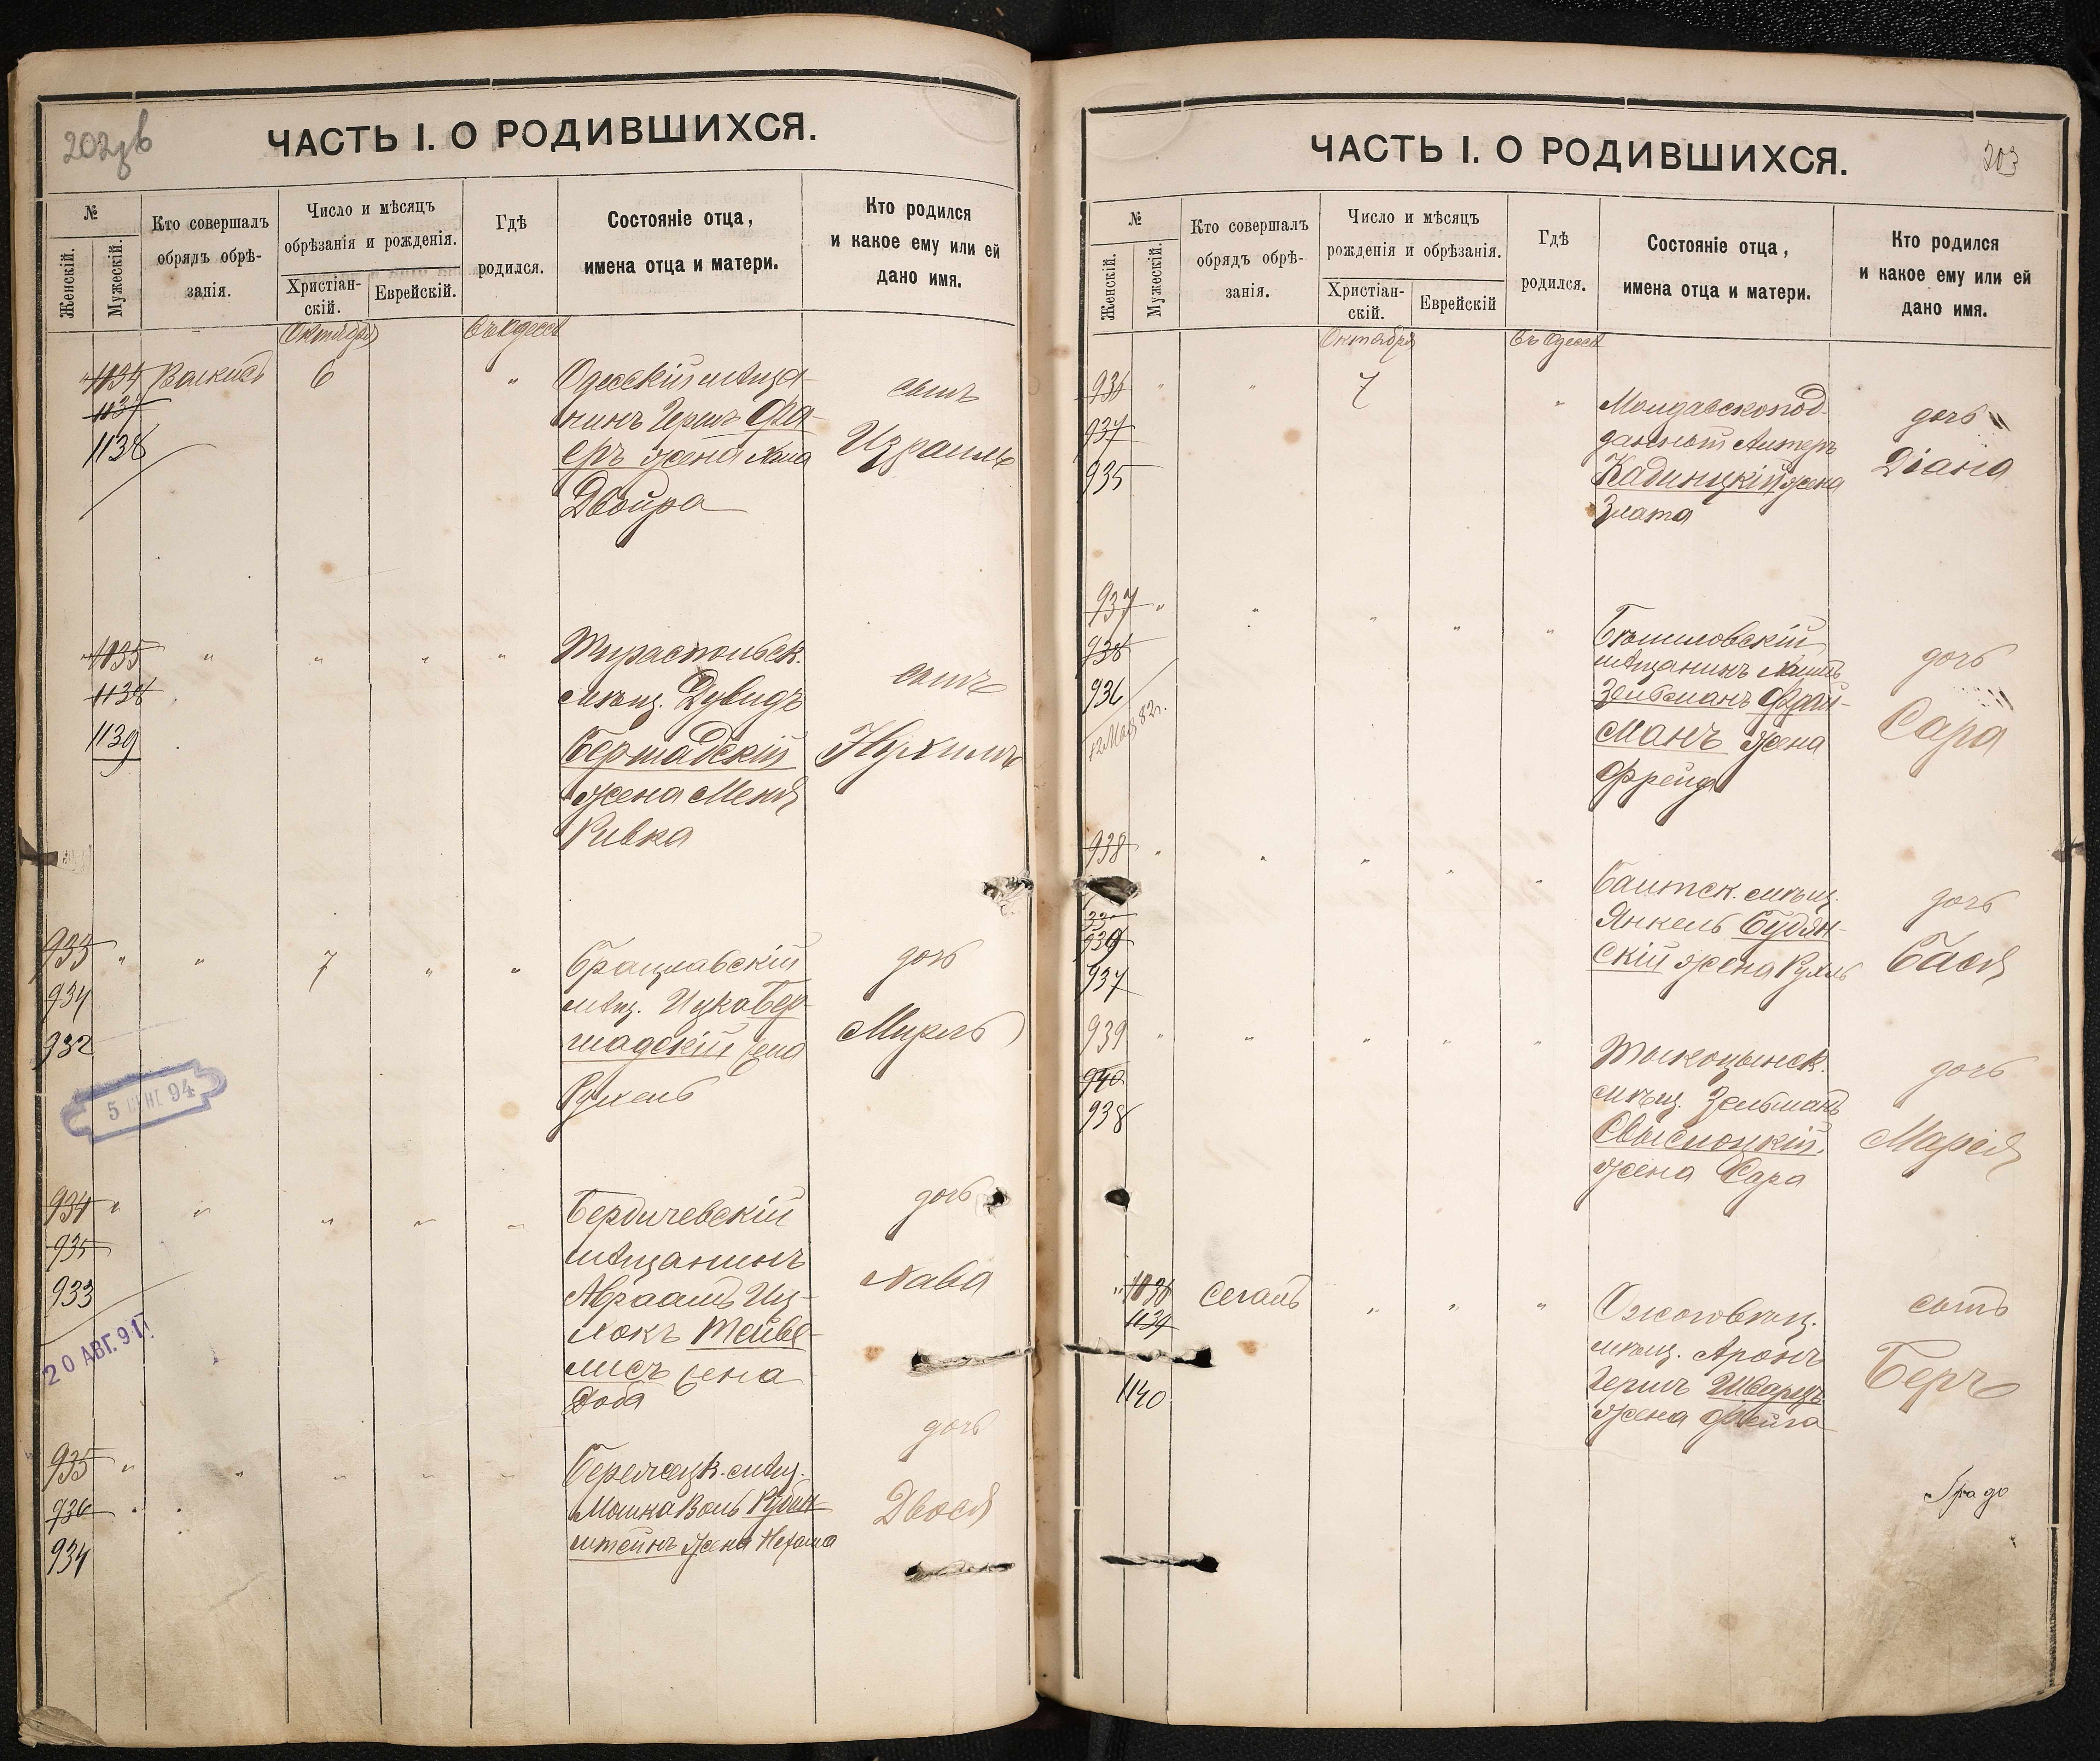 202 об
ЧАСТЬ I. О РОДИВШИХСЯ.
№
Женскій.
Мужескій.
Кто совершалъ
обрядъ обрѣ-
занія.
Число и мѣсяцъ
обрѣзанія и рожденія.
Христіан-
скій.
Еврейскій.
Гдѣ
родился.
Состояніе отца,
имена отца и матери.
Кто родился
и какое ему или ей
дано имя.
Октября
въ Одессѣ
1134
1137
1138
6
Одесскій мѣща-
нинъ Гершъ Фра-
еръ жена Хана
Двойра
сынъ
Израиль
1135
1138
1139
Тираспольск.
мѣщ. Дувидъ
Бершадскій
жена Меня
Ривка
сынъ
Нухимъ
933
934
932
7
Брацлавскій
мѣщ. Ицко Бер-
шадскій жена
Рухель
дочь
Мирль
5 СЕНТ 94
934
935
933
Бердичевскій
мѣщанинъ
Авраамъ Иц-
хокъ Тейве-
лисъ жена
Доба
дочь
Хава
20 АВГ. 911
935
936
934
мѣщ.
Мошка Волъ Рубин-
штейнъ жена Нехама
дочь
Двося
ЧАСТЬ I. О РОДИВШИХСЯ.
203
№
Женскій.
Мужескій.
Кто совершалъ
обрядъ обрѣ-
занія.
Число и мѣсяцъ
рожденія и обрѣзанія.
Христіан-
скій.
Еврейскій
Гдѣ
родился.
Состояніе отца,
имена отца и матери.
Кто родился
и какое ему или ей
дано имя.
Октября
въ Одессѣ
936
937
935
7
Молдавскопод-
данный Алтеръ
Кадиницкій жена
Злата
дочь
Діана
937
938
936
мѣщанинъ Хаимъ
Зельманъ Фрай-
манъ жена
Фрейда
дочь
Сара
938
939
937
Балтск. мѣщ.
Янкель Будян-
скій жена Рухль
дочь
Бася
939
940
938
Тыкоцынск.
мѣщ. Зельманъ
Свыслоцкій,
жена Сара
дочь
Марія
1136
1139
1140
Сегалъ
мѣщ. Аронъ
Гершъ Шварцъ
жена Фейга
сынъ
Беръ